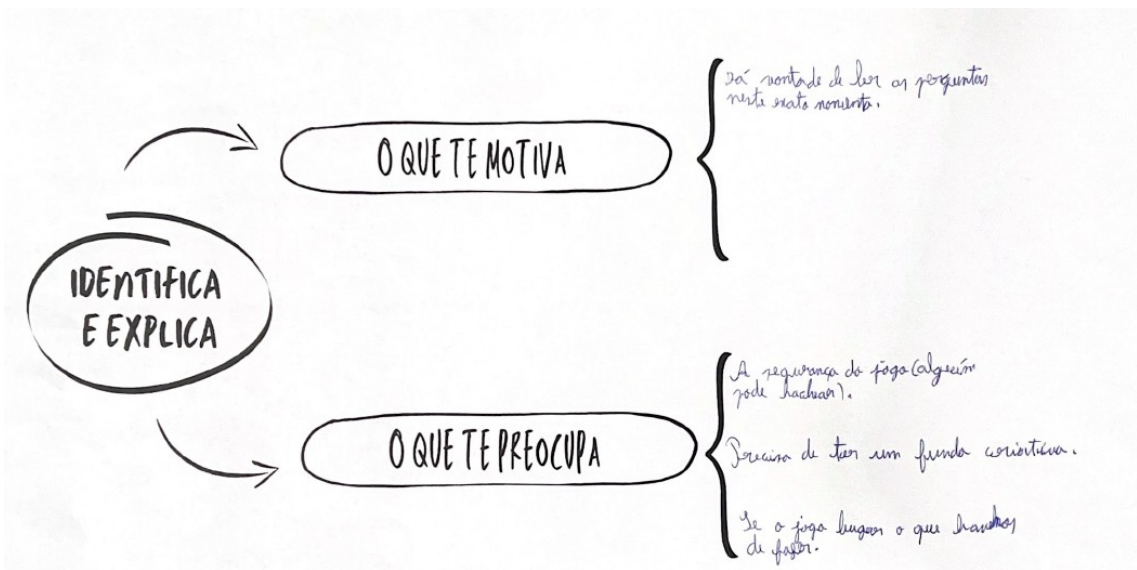 IDENTIFICA
E EXPLICA
O QUE TE MOTIVA
Dá vontade de ler as perguntas
neste exato momento.
O QUE TE PREOCUPA
A segurança do jogo (alguém
pode hackear).
Precisa de ter um fundo
Se o jogo bugar o que havemos
de fazer.